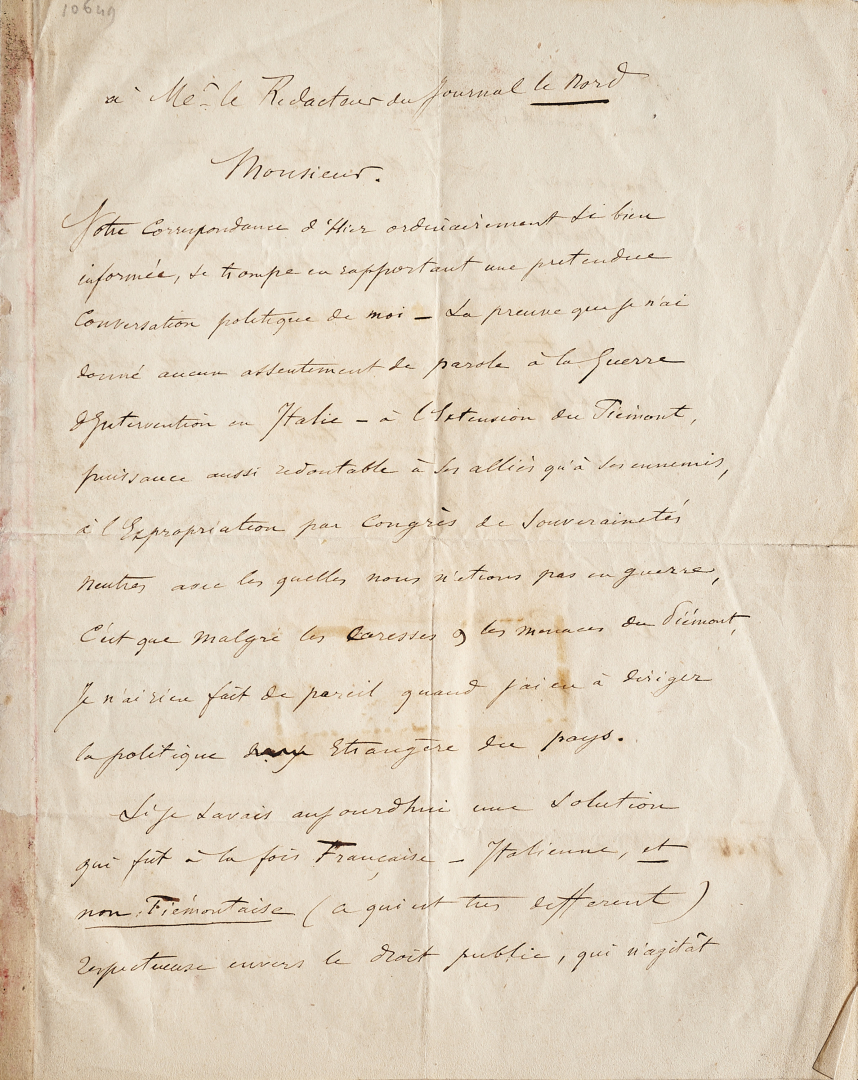 10649
à Mr. le Redacteur du Journal le Nord
Monsieur.
Votre Correspondance d'Hier ordinairement si bien
informée, se trompe en rapportant une pretendue
Conversation politique de moi – La preuve que je n'ai
donné aucun assentement de parole à la Guerre
d'Intervention en Italie – à l'Extension du Piémont,
puissance aussi redoutable à ses alliés qu'à ses ennemis,
à l'Expropriation par Congrès de Souverainetés
neutres avec les quelles nous n'etions pas en guerre,
C'est que malgré les Caresses & les menaces du Piémont,
Je n'ai rien fait de pareil quand j'ai eu à diriger
la politique Etrangère du pays.
Si je savais aujourdhui une solution
qui fut à la fois Française – Italienne, et
non Piémontaise (ce qui est tres different)
respectueuse envers le droit public, qui n'agitât